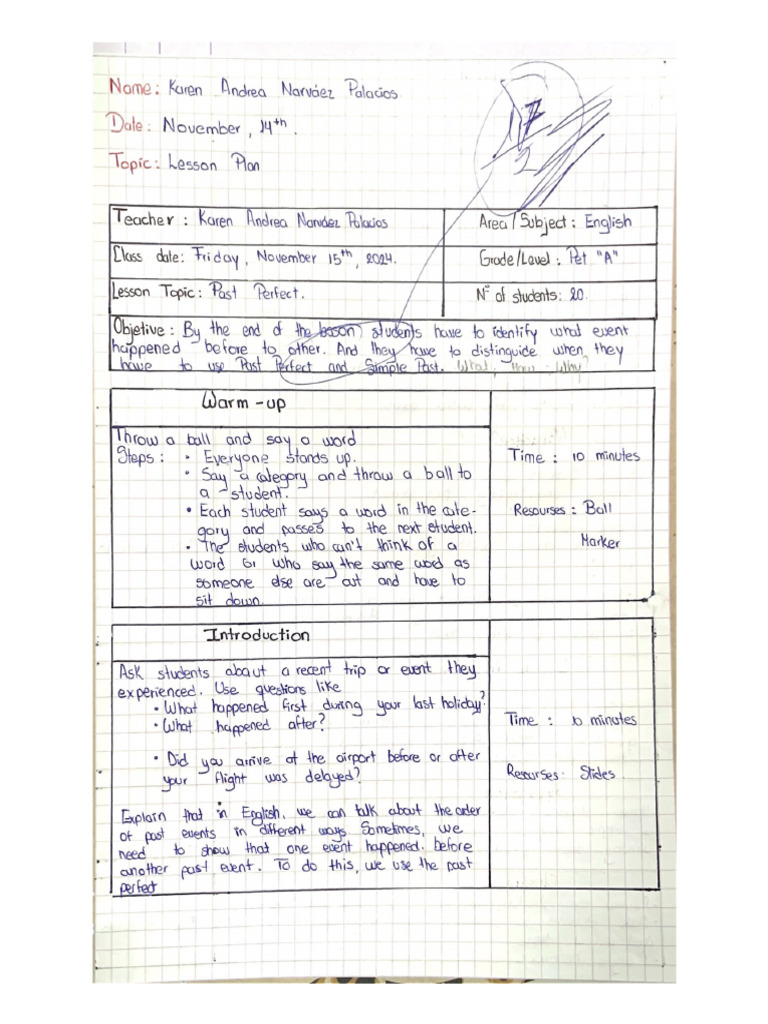 Name: Karen Andrea Narváez Palacios
Date: November, 14th.
Topic: Lesson Plan
Teacher: Karen Andrea Narváez Palacios
Area/Subject: English
Class date: Friday, November 15th, 2024.
Grade/Level: Pet "A"
Lesson Topic: Past Perfect.
N° of students: 20.
Objetive: By the end of the lesson students have to identify what event
happened before to other. And they have to distinguide when they
have to use Past Perfect and Simple Past. What, How, Why
Warm-up
Throw a ball and say a word
Steps: • Everyone stands up.
• Say a category and throw a ball to
a student.
• Each student says a word in the cate-
gory and passes to the next student.
• The students who can't think of a
word or who say the same word as
someone else are out and have to
sit down.
Time: 10 minutes
Resourses: Ball
Marker
Introduction
Ask students about a recent trip or event they
experienced. Use questions like
• What happened first during your last holiday?
• What happened after?
• Did you arrive at the airport before or after
your flight was delayed?
Explain that in English, we can talk about the order
of past events in different ways Sometimes, we
need to show that one event happened. before
another past event. To do this, we use the past
perfect
Time: 10 minutes
Resourses: Slides.